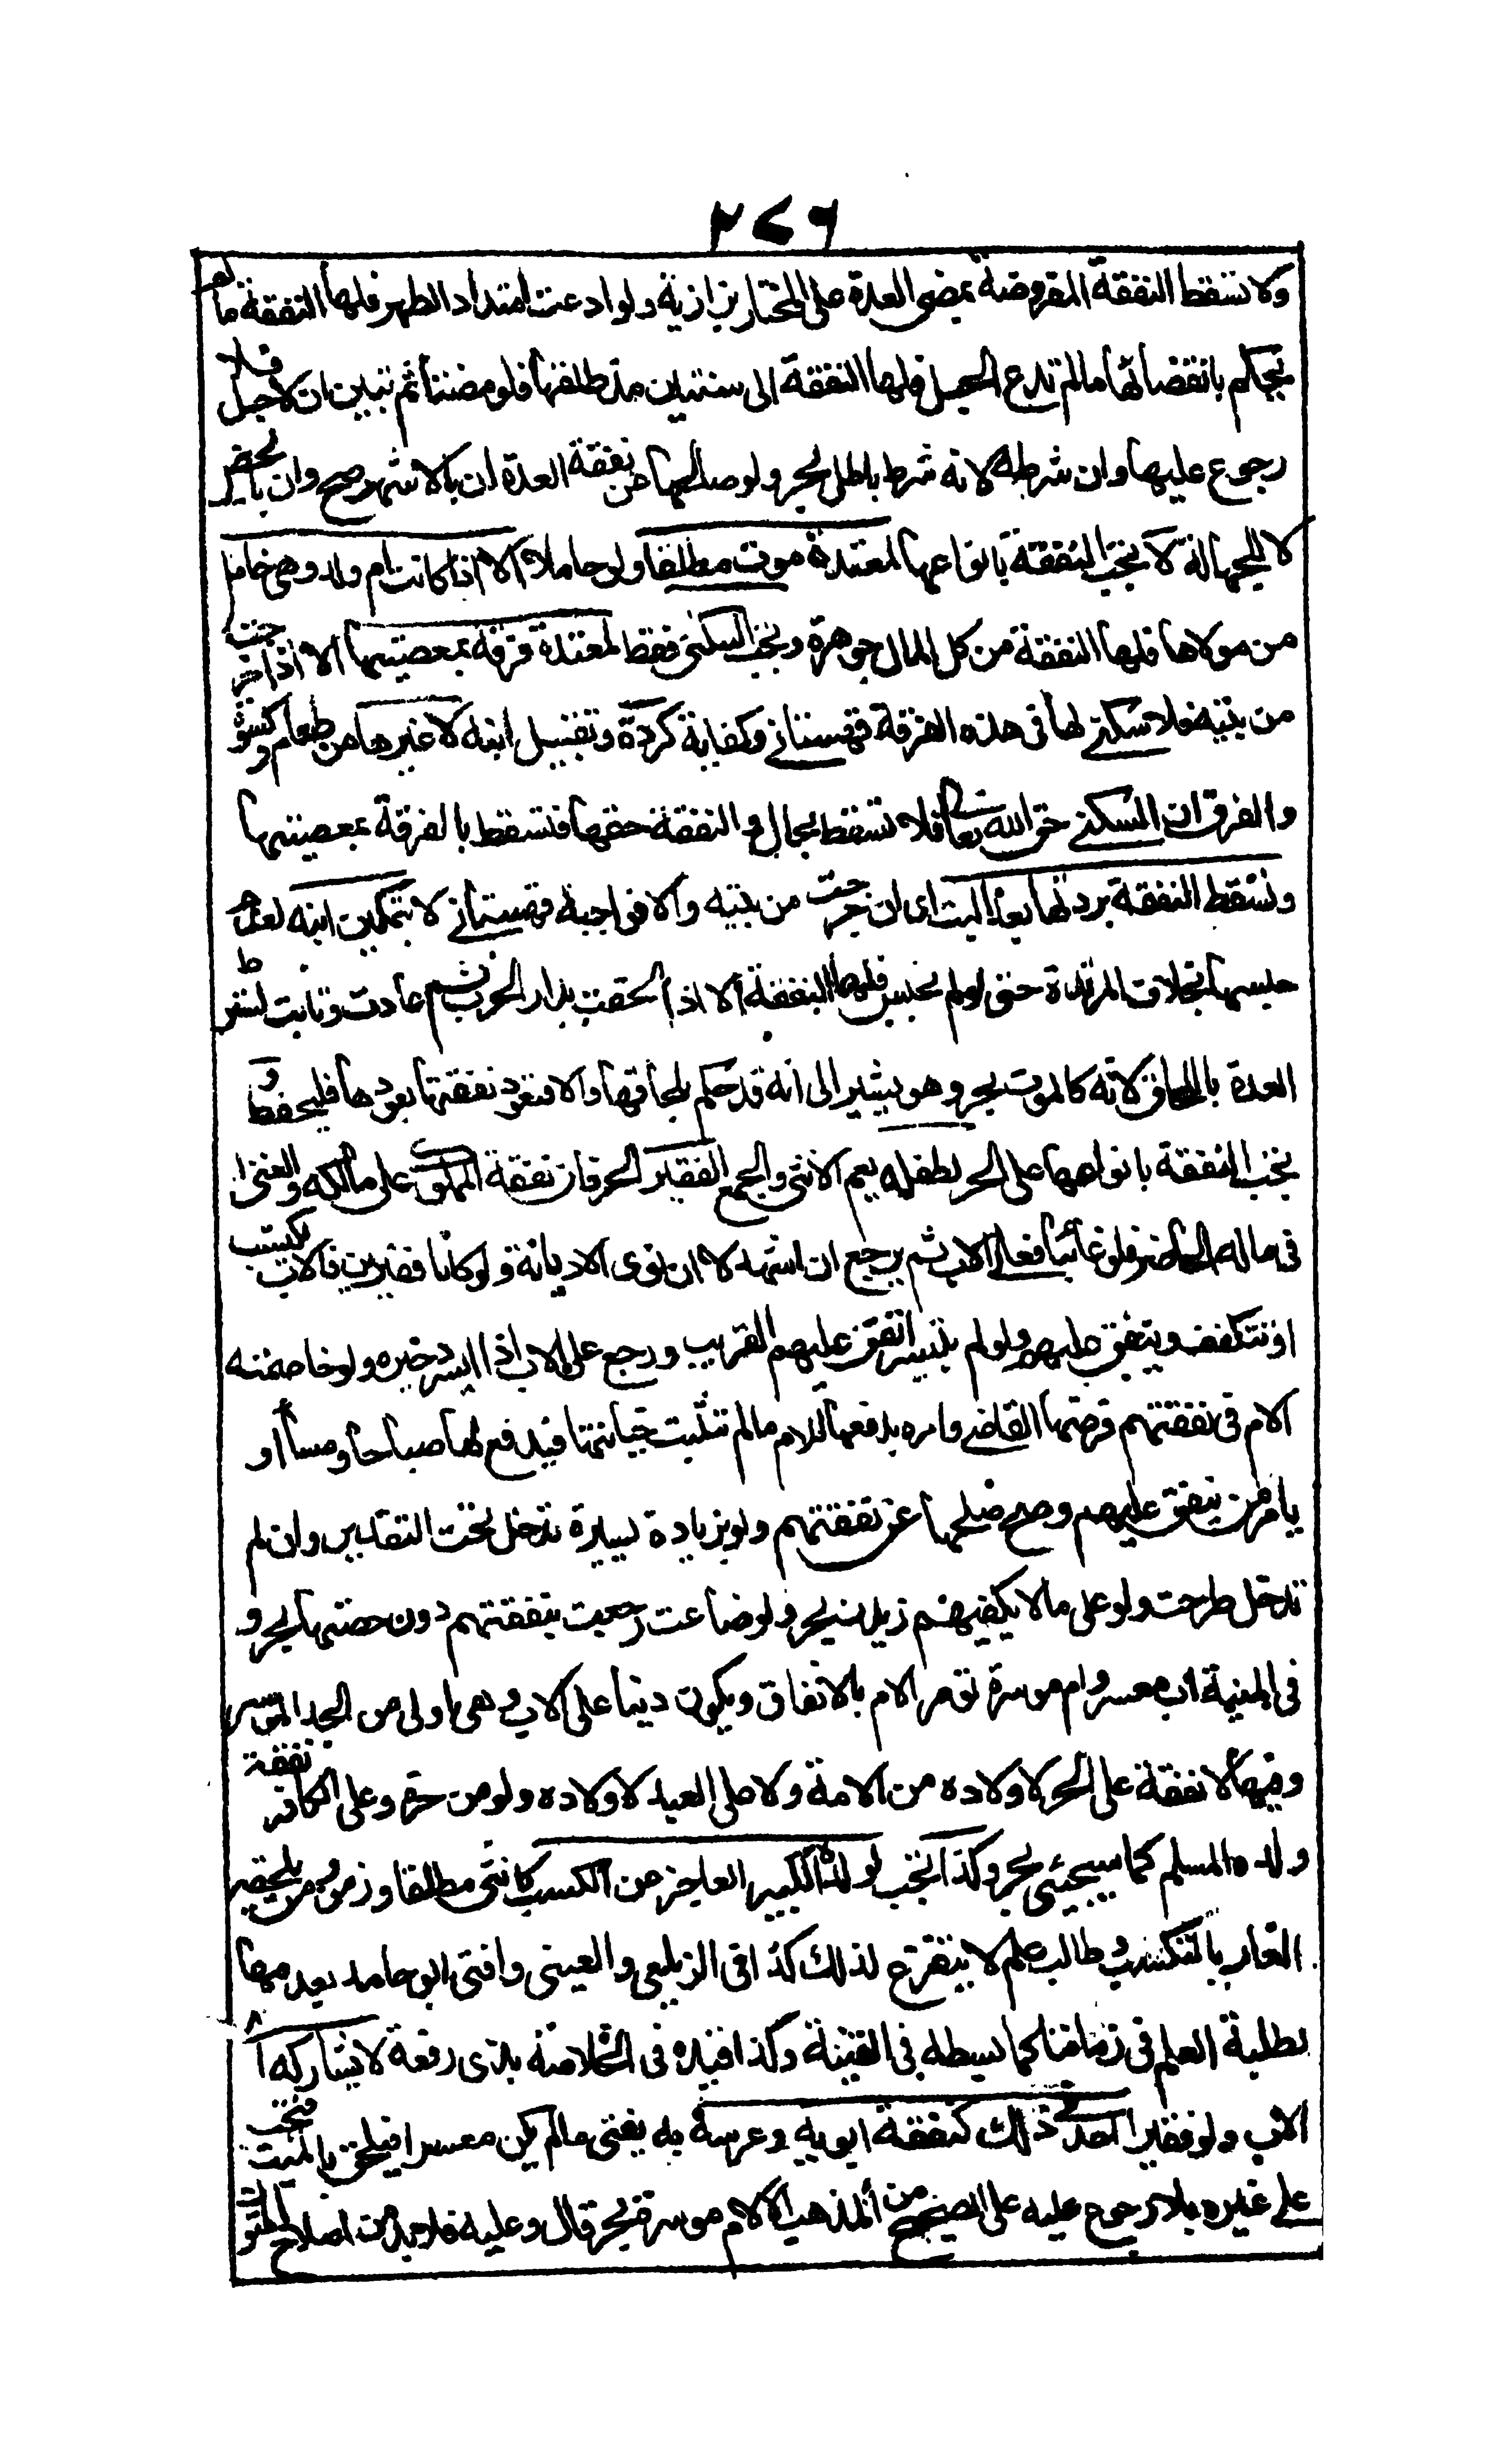 ٢٧٦
ولا تسقط النفقة المفروضة بمضي العدة على المختار بزازية ولو ادعت امتداد الطهر فلها النفقة ما لم
يحكم بانقضائها ما لم تدع الحبل فلها النفقة الى سنتين مذ طلقها فلو مضتا ثم تبين ان لا حبل فلا
رجوع عليها وان شرطه لانه شرط باطل بحر ولو صالحها عن نفقة العدة ان بالاشهر صح وان بالحيض
لا للجهالة لا تجب النفقة بانواعها لمعتدة موت مطلقا ولو حاملا الا اذا كانت ام ولد وهي حامل
من مولاها فلها النفقة من كل المال جوهرة وتجب السكنى فقط لمعتدة فرقة بمعصيتها الا اذا خرجت
من بيته فلا سكنى لها في هذه الفرقة قهستاني وكفاية كردة وتقبيل ابنه لا غيرها من طعام وكسوة
والفرق ان السكنى حق الله تعالى فلا تسقط بحال والنفقة حقها فتسقط بالفرقة بمعصيتها
وتسقط النفقة بردتها بعد البت اى ان خرجت من بيته والا فواجبة قهستاني لا بتمكين ابنه لعدم
حبسها بخلاف المرتدة حتى لو لم تحبس فلها النفقة الا اذا لحقت بدار الحرب ثم عادت وتابت لسقوط
العدة باللحاق لانه كالموت بحر وهو يشير الى انه قد حكم بلحاقها والا فتعود نفقتها بعودها فليحفظ و
تجب النفقة بانواعها على الحر لطفله يعم الانثى والجمع الفقير الحر فان نفقة المملوك على مالكه والغنى
فى ماله الحاضر فلو غائبا فعلى الاب ثم يرجع ان اشهد لا ان نوى الا ديانة ولو كانا فقيرين فالاب يكتسب
او يتكفف وينفق عليهم ولو لم يتيسر انفق عليهم القريب ورجع على الاب اذا ايسر ذخيره ولو خاصمته
الام فى نفقتهم فرضها القاضى وامره بدفعها للام ما لم تثبت خيانتها فيدفع لها صباحا ومساأ او
يامر من ينفق عليهم وصح صلحها عن نفقتهم ولو بزيادة يسيرة تدخل تحت التقدير وان لم
تدخل طرحت ولو على ما لا يكفيهم زيدت بحر ولو ضاعت رجعت بنفقتهم دون حصتها بحر و
فى المنية اب معسر وام موسرة تؤمر الام بالانفاق ويكون دينا على الاب وهى اولى من الجد الموسر
وفيها لا نفقة على الحر لاولاده من الامة ولا على العبد لاولاده ولو من حرة وعلى الكافر نفقة
ولده المسلم كما سيجئى بحر وكذا تجب لولده الكبير العاجز عن الكسب كانثى مطلقا وزمن ومن يلحقه
العار بالتكسب وطالب علم لا يتفرغ لذلك كذا فى الزيلعى والعينى وافتى ابو حامد بعدمها
لطلبة العلم فى زماننا كما بسطه فى القنية وكذا قيده فى الخلاصة بذى رشد لا يشاركه ا
الاب ولو فقيرا احد فى ذلك كنفقة ابويه وعرسه به يفتى ما لم يكن معسرا فيلحق بالميت فتجب
على غيره بلا رجوع عليه على الصحيح من المذهب الا لام موسرة بحر قال وعليه فلا بد من اصلاح المتون